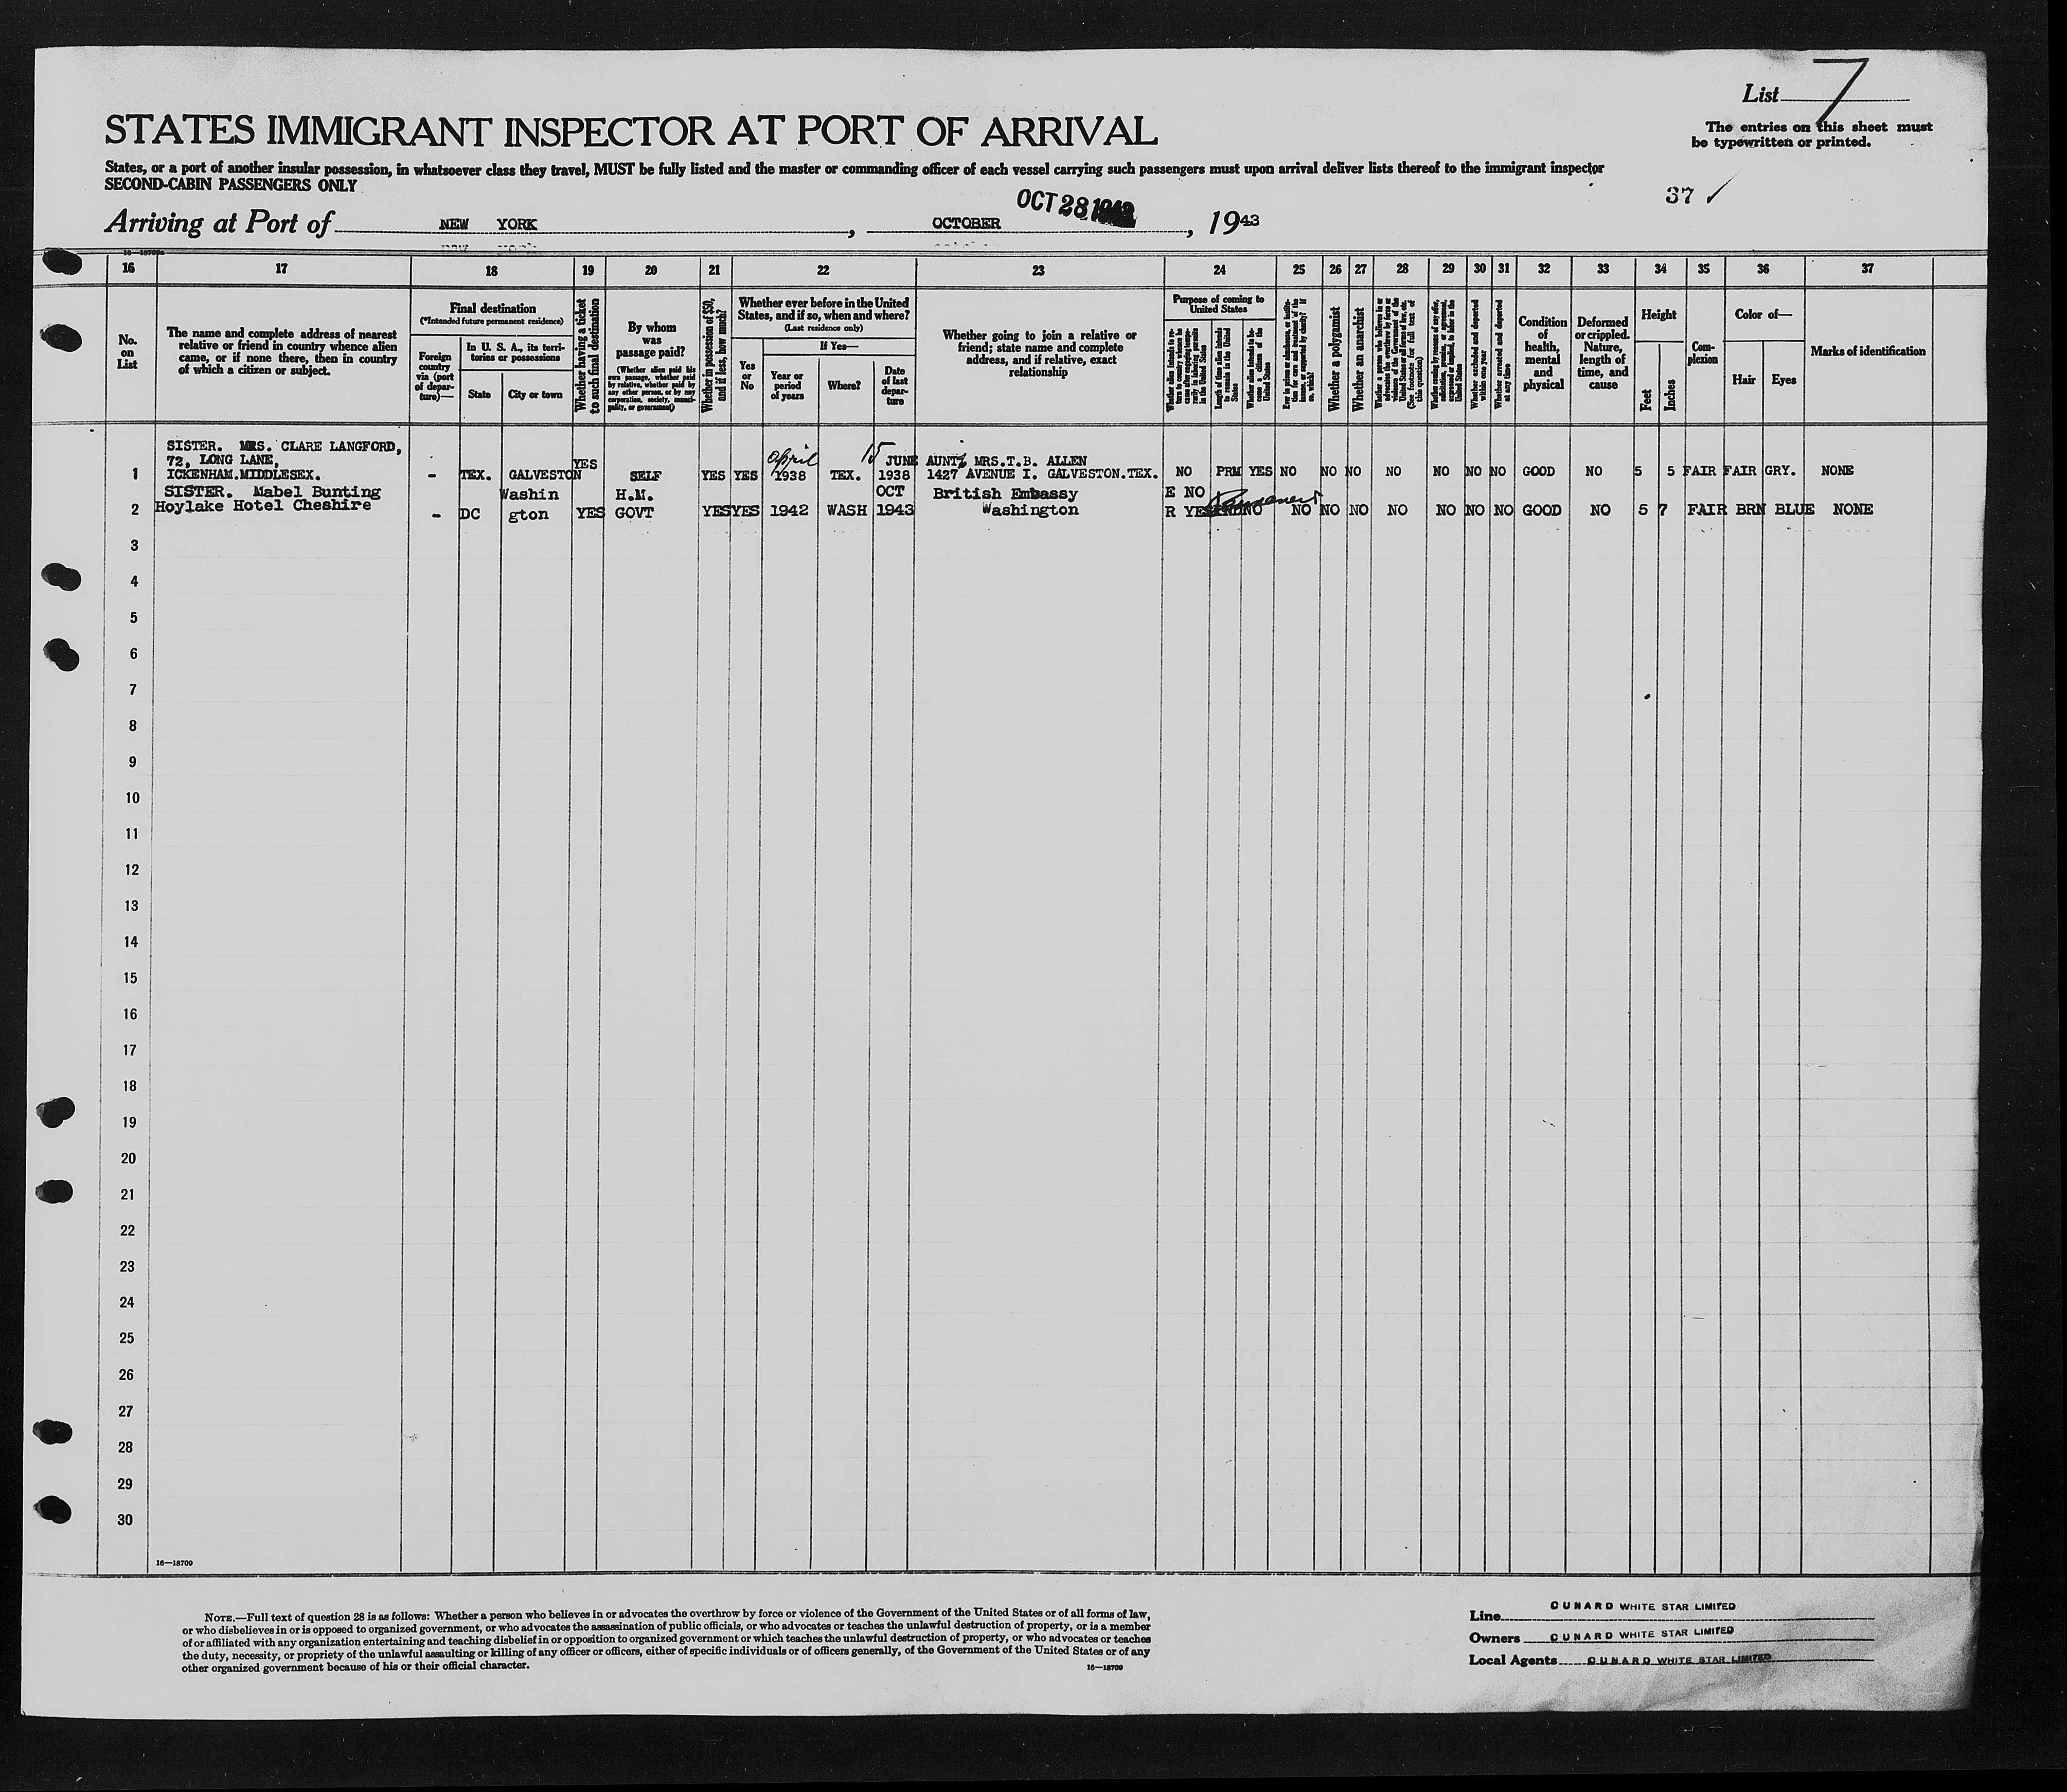 List 7
The entries on this sheet must
be typewritten or printed.
STATES IMMIGRANT INSPECTOR AT PORT OF ARRIVAL
States, or a port of another insular possession, in whatsoever class they travel, MUST be fully listed and the master or commanding officer of each vessel carrying such passengers must upon arrival deliver lists thereof to the immigrant inspector
SECOND-CABIN PASSENGERS ONLY
37 ✓
OCT 28 1943
Arriving at Port of NEW YORK, OCTOBER, 1943
16 17 18 19 20 21 22 23 24 25 26 27 28 29 30 31 32 33 34 35 36 37
No. on List
The name and complete address of nearest
relative or friend in country whence alien
came, or if none there, then in country
of which a citizen or subject.
Final destination
(*Intended future permanent residence)
Foreign
country
via (port
of depar-
ture)—
In U. S. A., its terri-
tories or possessions
State
City or town
Whether having a ticket
to such final destination
By whom
was
passage paid?
(Whether alien paid his
own passage, whether paid
by relative, whether paid by
any other person, or by any
corporation, society, munici-
pality, or government)
Whether in possession of $50,
and if less, how much?
Whether ever before in the United
States, and if so, when and where?
(Last residence only)
Yes
or
No
If Yes—
Year or
period
of years
Where?
Date
of last
depar-
ture
Whether going to join a relative or
friend; state name and complete
address, and if relative, exact
relationship
Purpose of coming to
United States
Whether alien intends to re-
turn to country whence he
came after engaging tempo-
rarily in laboring pursuits
in the United States
Length of time alien intends
to remain in the United
States
Whether alien intends to be-
come a citizen of the
United States
Ever in prison or almshouse, or institu-
tion for care and treatment of the
insane, or supported by charity? If
so, which?
Whether a polygamist
Whether an anarchist
Whether a person who believes in or
advocates the overthrow by force or
violence of the Government of the
United States or all forms of law, etc.
(See footnote for full text of
this question)
Whether coming by reason of any offer,
solicitation, promise, or agreement,
expressed or implied, to labor in the
United States
Whether excluded and deported
within one year
Whether arrested and deported
at any time
Condition
of
health,
mental
and
physical
Deformed
or crippled.
Nature,
length of
time, and
cause
Height
Feet
Inches
Com-
plexion
Color of—
Hair
Eyes
Marks of identification
SISTER. MRS. CLARE LANGFORD,
72, LONG LANE, YES April 15 JUNE AUNT MRS.T.B. ALLEN
1 ICKENHAM.MIDDLESEX. - TEX. GALVESTON SELF YES YES 1938 TEX. 1938 1427 AVENUE I. GALVESTON.TEX. NO PRM YES NO NO NO NO NO NO NO GOOD NO 5 5 FAIR FAIR GRY. NONE
SISTER. Mabel Bunting Washin H.M. OCT British Embassy E NO Permanent
2 Hoylake Hotel Cheshire - DC gton YES GOVT YES YES 1942 WASH 1943 Washington R YES NO NO NO NO NO NO NO NO GOOD NO 5 7 FAIR BRN BLUE NONE
3
4
5
6
7
8
9
10
11
12
13
14
15
16
17
18
19
20
21
22
23
24
25
26
27
28
29
30
16—18709
NOTE.—Full text of question 28 is as follows: Whether a person who believes in or advocates the overthrow by force or violence of the Government of the United States or of all forms of law,
or who disbelieves in or is opposed to organized government, or who advocates the assassination of public officials, or who advocates or teaches the unlawful destruction of property, or is a member
of or affiliated with any organization entertaining and teaching disbelief in or opposition to organized government or which teaches the unlawful destruction of property, or who advocates or teaches
the duty, necessity, or propriety of the unlawful assaulting or killing of any officer or officers, either of specific individuals or of officers generally, of the Government of the United States or of any
other organized government because of his or their official character.
16—18709
Line CUNARD WHITE STAR LIMITED
Owners CUNARD WHITE STAR LIMITED
Local Agents CUNARD WHITE STAR LIMITED